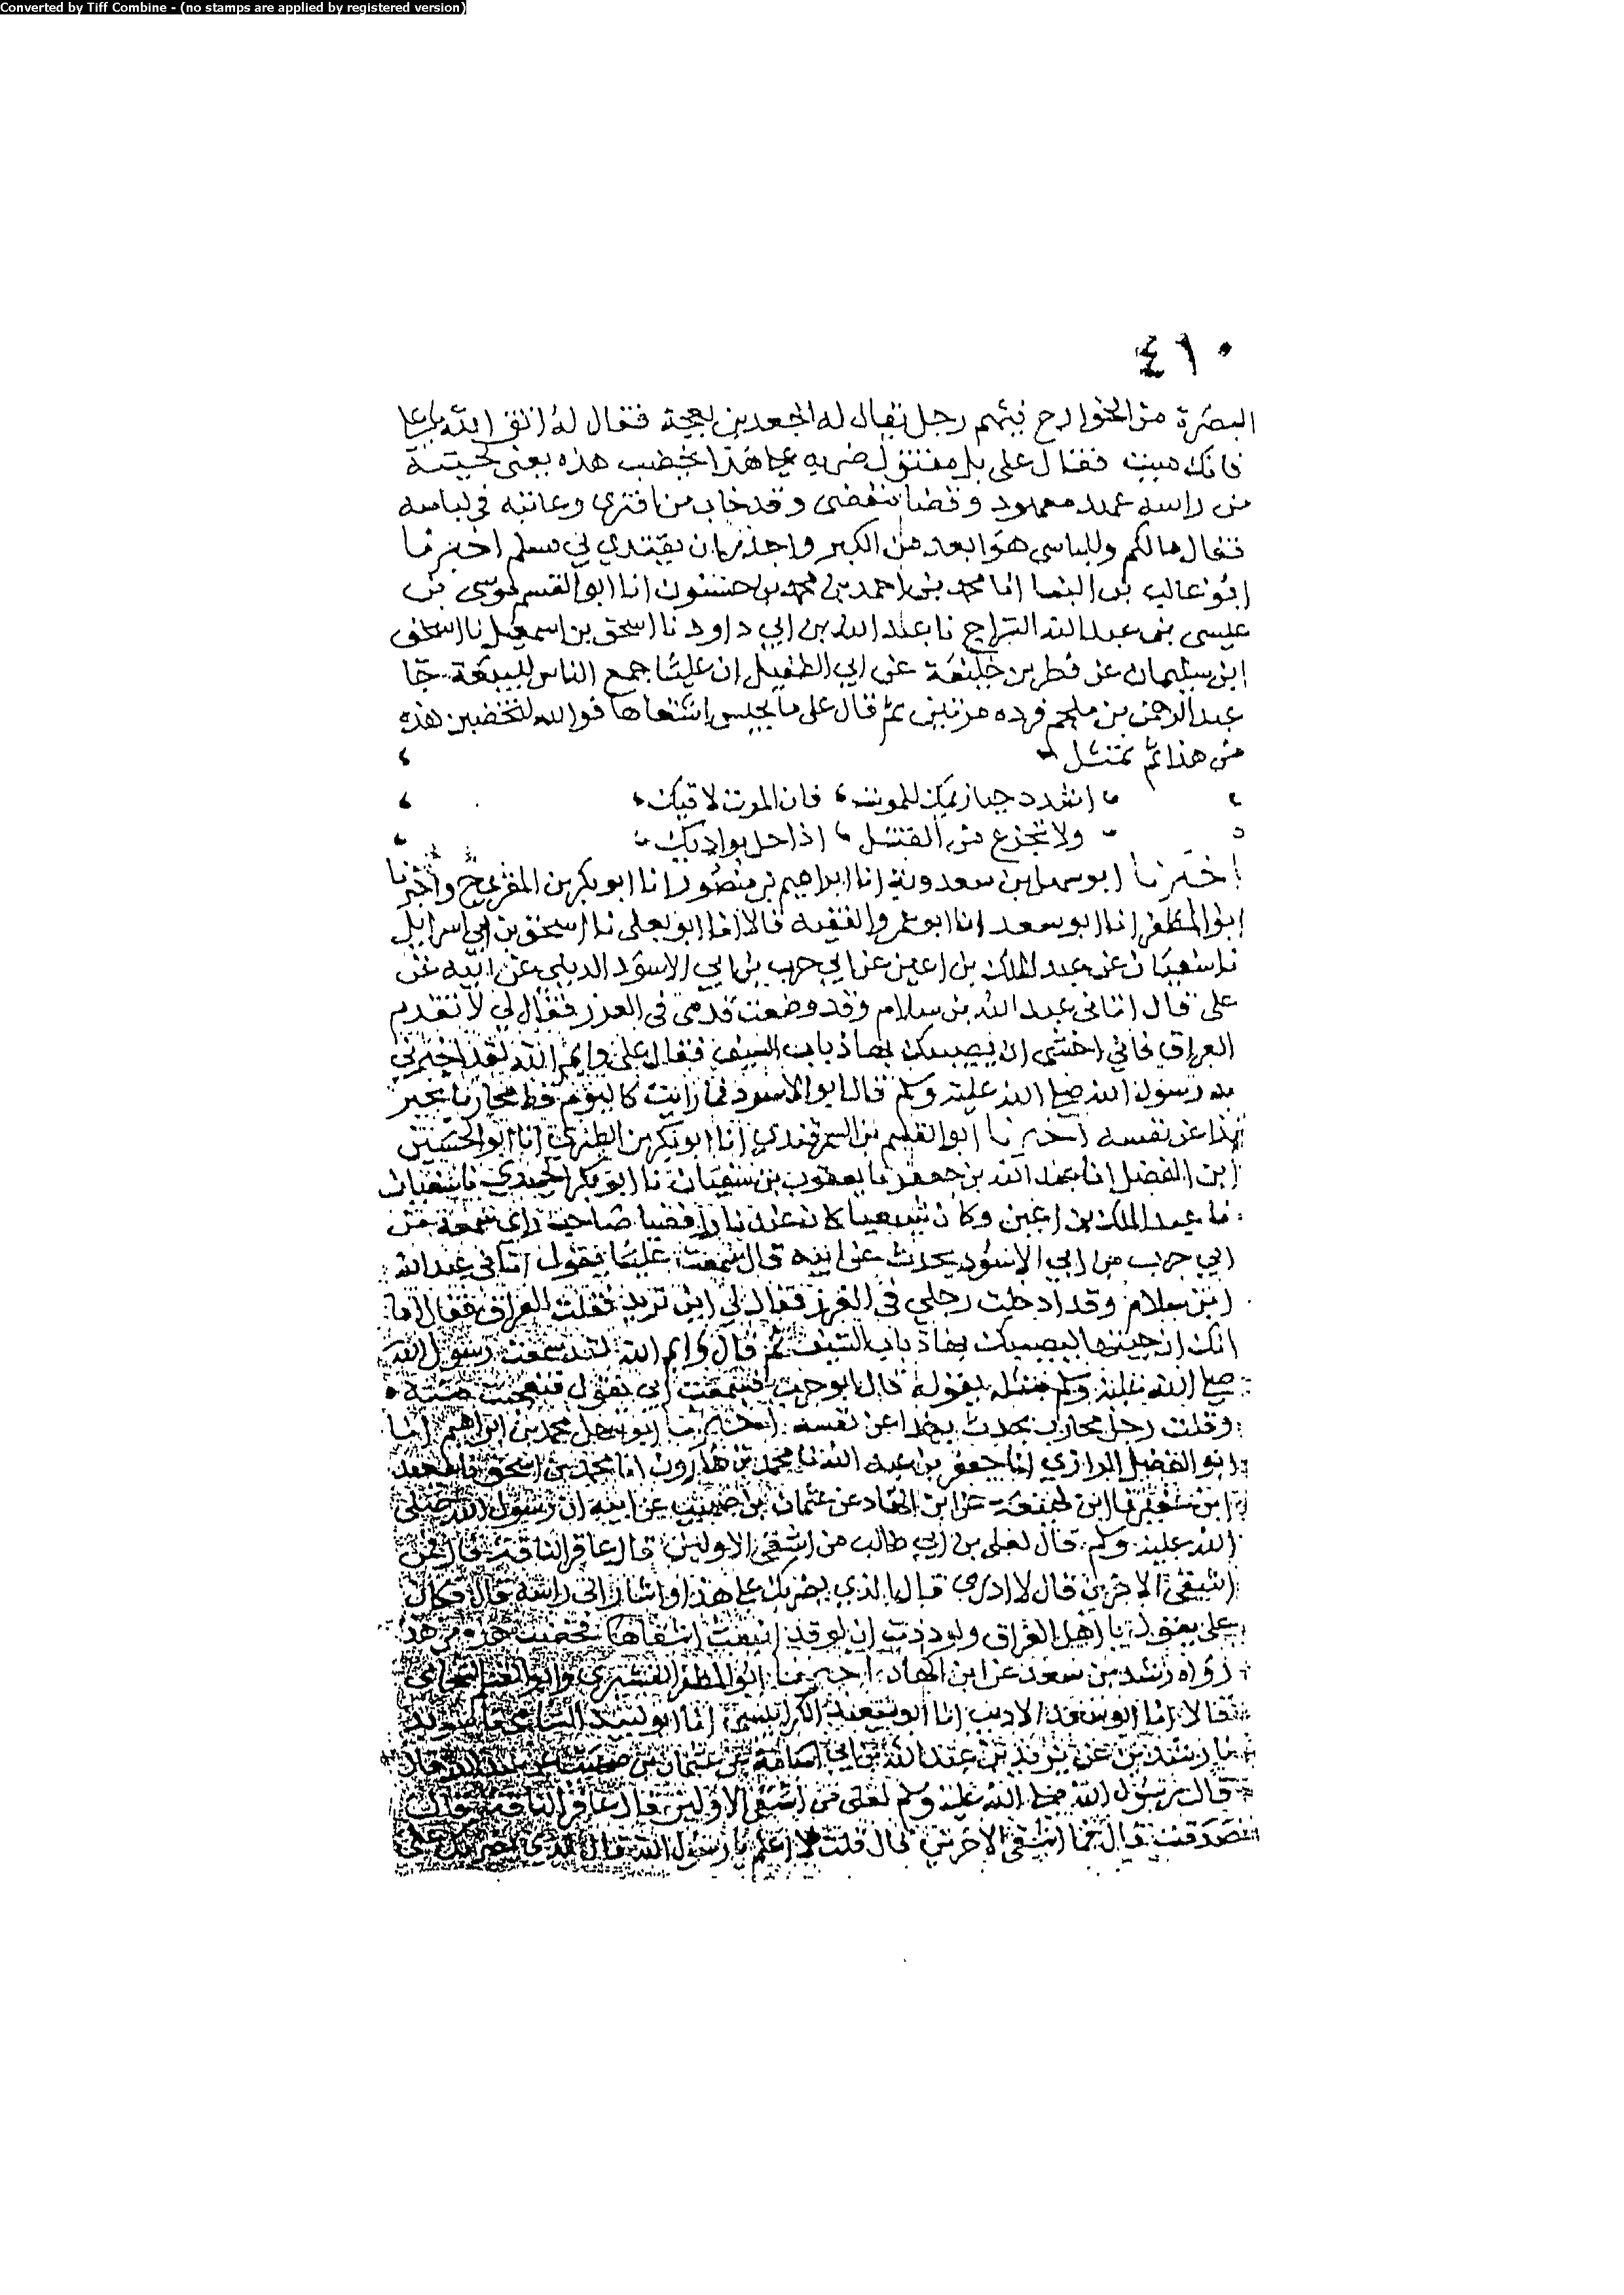 Converted by Tiff Combine - (no stamps are applied by registered version)
٤١٠
البصرة من الخوارج فيهم رجل يقال له الجعد بن بعجة فقال له اتق الله يا علي
فانك ميت فقال علي بل مقتول ضربه على هذا يخضب هذه يعني لحيته
من راسه عهد معهود وقضا مقضى وقد خاب من افترى وعاتبه في لباسه
فقال مالكم وللباسي هو ابعد من الكبر واجدر ان يقتدي بي مسلم اخبرنا
ابو غالب بن البنا انا محمد بن احمد بن محمد بن حسنون انا ابو القسم موسى بن
عيسى بن عبد الله السراج نا عبد الله بن ابي داود نا اسحق بن اسمعيل نا اسحق
ابن سليمان عن فطر بن خليفة عن ابي الطفيل ان عليا جمع الناس للبيعة جا
عبد الرحمن بن ملجم فرده مرتين ثم قال علي ما يحبس اشقاها فوالله لتخضبن هذه
من هذا ثم تمثل
اشدد حيازيمك للموت فان الموت لاقيك
ولا تجزع من القتل اذا حل بواديك
اخبرنا ابو سهل بن سعدويه انا ابراهيم بن منصور انا ابو بكر بن المقري ح واخبرنا
ابو المظفر انا ابو سعد انا ابو عمرو الفقيه قالا انا ابو يعلى نا اسحق بن ابي اسرايل
نا سفيان عن عبد الملك بن اعين عن ابي حرب بن ابي الاسود الديلي عن ابيه عن
علي قال اتاني عبد الله بن سلام وقد وضعت قدمي في الغرز فقال لي لا تقدم
العراق فاني اخشى ان يصيبك بها ذباب السيف فقال علي وايم الله لقد اخبرني
به رسول الله صلى الله عليه وسلم قال ابو الاسود فما رايت كاليوم قط محاربا يخبر
بذا عن نفسه اخبرنا ابو القسم بن السمرقندي انا ابو بكر بن الطبري انا ابو الحسين
ابن الفضل انا عبد الله بن جعفر نا يعقوب بن سفيان نا ابو بكر الحميدي نا سفيان
نا عبد الملك بن اعين وكان شيعيا كان عندنا رافضيا صاحب راي سمعه من
ابي حرب بن ابي الاسود يحدث عن ابيه قال سمعت عليا يقول اتاني عبد الله
ابن سلام وقد ادخلت رجلي في الغرز فقال لي اين تريد فقلت العراق فقال اما
انك ان جيتها ليصيبك بها ذباب السيف ثم قال وايم الله لقد سمعت رسول الله
صلى الله عليه وسلم قبله يقوله قال ابو حرب فسمعت ابي يقول فتعجبت منه
وقلت رجل محارب يحدث بهذا عن نفسه اخبرنا ابو سهل محمد بن ابراهيم انا
ابو الفضل الرازي انا جعفر بن عبد الله نا محمد بن هارون انا محمد بن اسحق نا
ابن لهيعة عن ابن الهاد عن عثمان بن صهيب عن ابيه ان رسول الله صلى
الله عليه وسلم قال لعلي بن ابي طالب من اشقى الاولين قال عاقر الناقة قال فمن
اشقى الاخرين قال لا ادري قال الذي يضربك على هذا واشار الى راسه قال فكان
علي يقول يا اهل العراق ولوددت ان لو قد انبعث اشقاها فخضب هذه من هذا
رواه رشد بن سعد عن ابن الهاد اخبرنا ابو المظفر القشيري وابو القسم الشحامي
قالا انا ابو سعد الاديب انا ابو سعيد الكرابيسي انا ابو لبيد السامي نا سويد
نا رشدين عن يزيد بن عبد الله بن ابي اسامة عن عثمان بن صهيب قال
قال رسول الله صلى الله عليه وسلم لعلي من اشقى الاولين قال عاقر الناقة قال
صدقت قال فما اشقى الاخرين قال قلت لا اعلم يا رسول الله قال الذي يضربك على